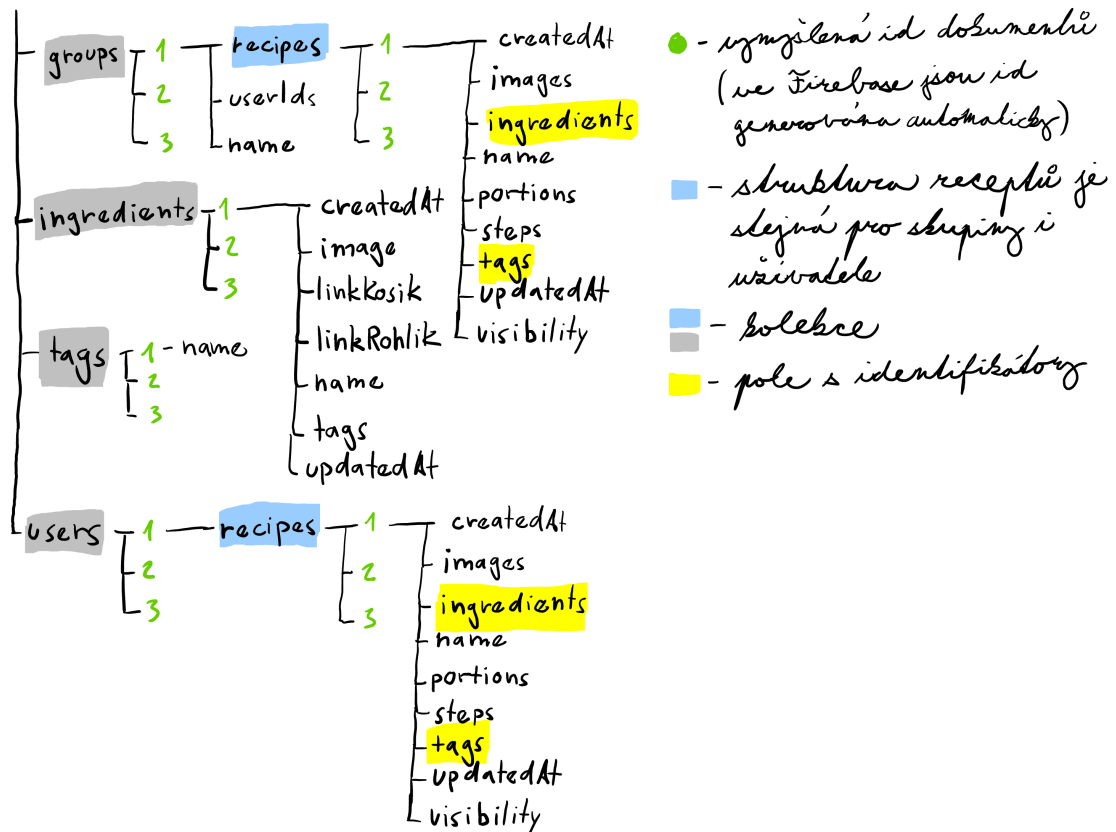 groups 1 recipes 1 createdAt
2 userIds 2 images
3 name 3 ingredients
name
portions
steps
tags
updatedAt
visibility
ingredients 1 createdAt
2 image
3 linkKosik
linkRohlik
name
tags
updatedAt
tags 1 - name
2
3
users 1 recipes 1 createdAt
2 2 images
3 3 ingredients
name
portions
steps
tags
updatedAt
visibility
- vymyšlená id dokumentů
(ve Firebase jsou id
generována automaticky)
- struktura receptů je
stejná pro skupiny i
uživatele
- kolekce
- pole s identifikátory